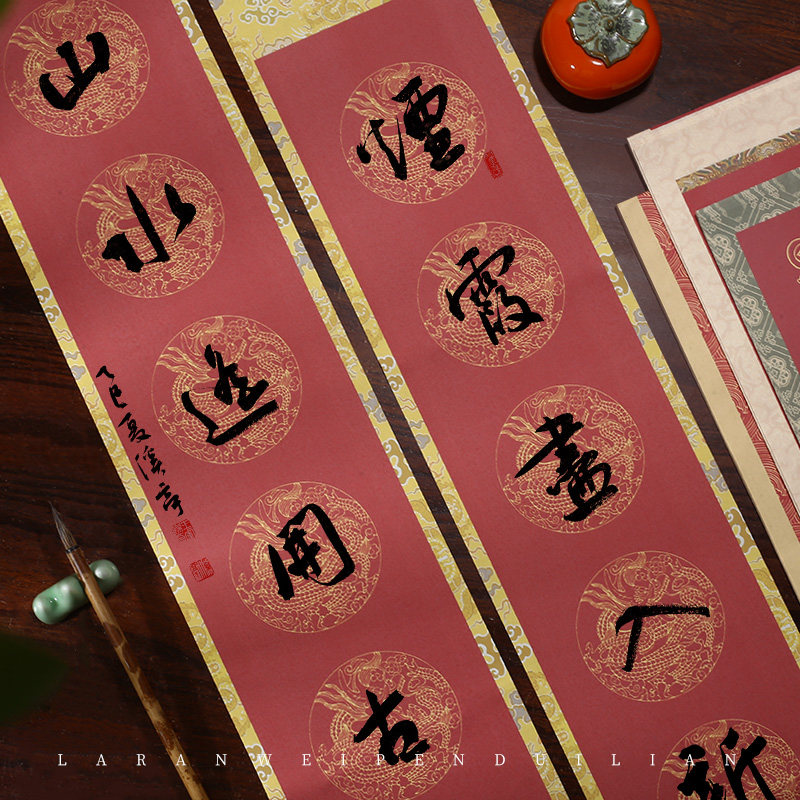 煙霞盡入新
山水遙開古
乙巳夏溪亭
LARANWEIPENDUILIAN